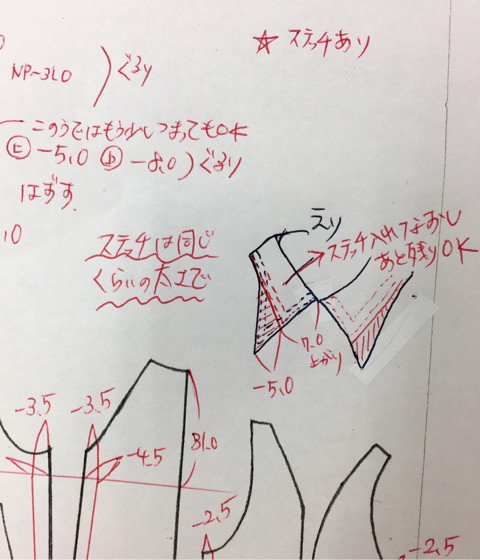 ☆ ステッチあり
NP-3L0 )ぐるり
このうではもう少しつまってもOK
ⓗ -5.0 ⓑ -8.0 )ぐるり
はずす.
ステッチは同じ
くらいの太さで
えり
ステッチ入れなおし
あと残りOK
7.0
上がり
-5.0
-3.5 -3.5
-4.5
31.0
-2.5
-2.5